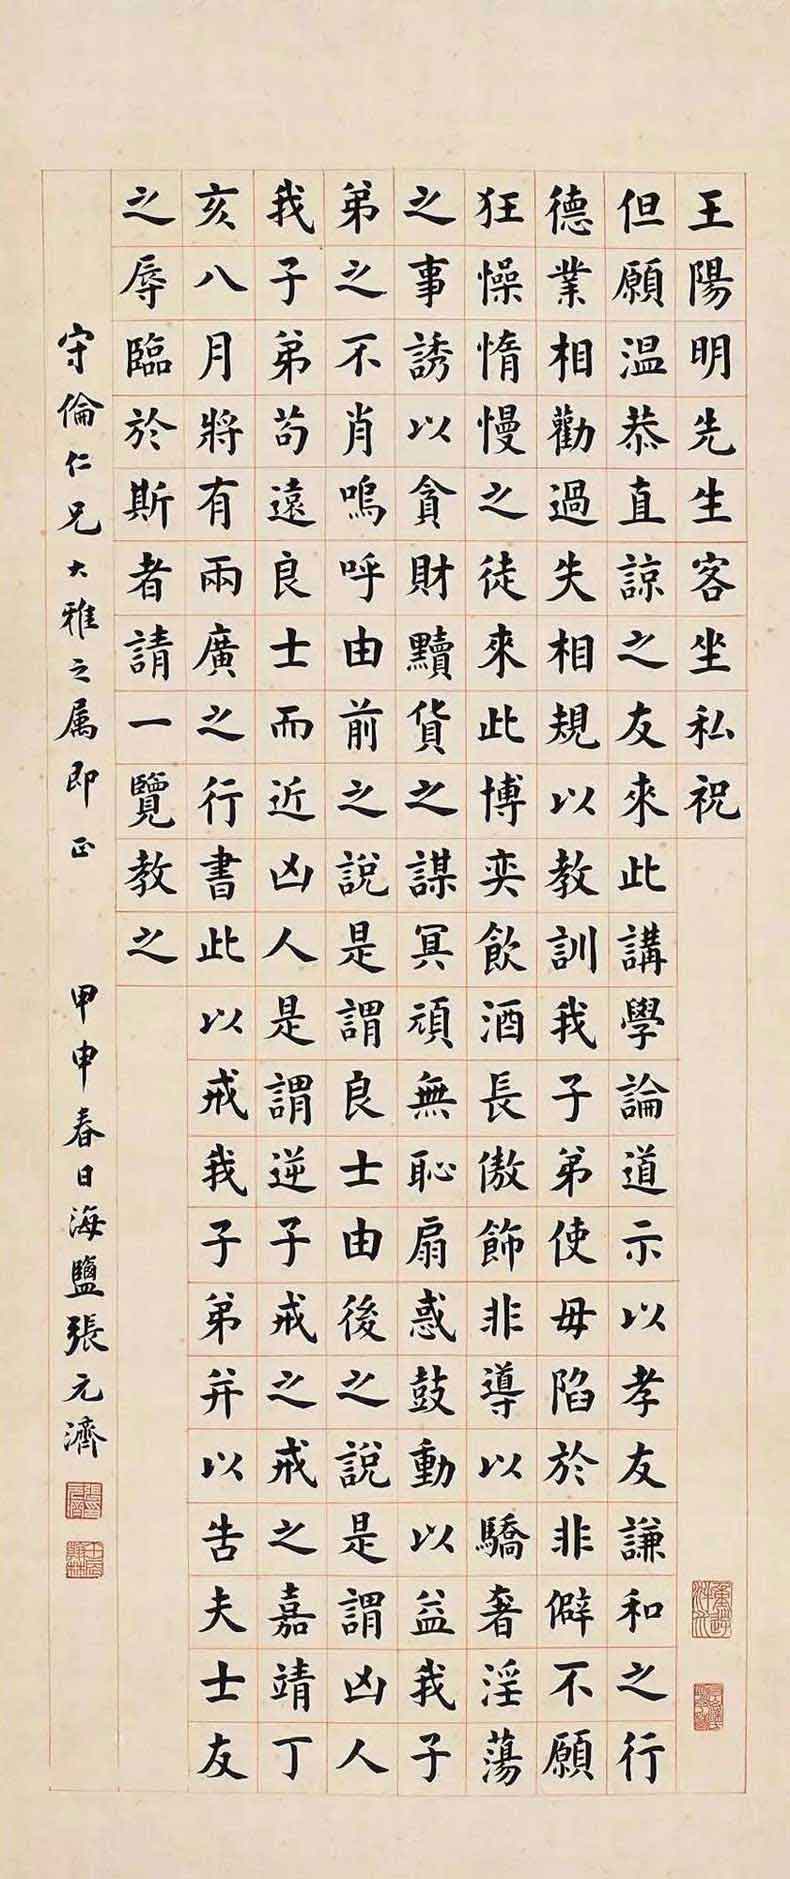 王陽明先生客坐私祝
但願温恭直諒之友來此講學論道示以孝友謙和之行
德業相勸過失相規以教訓我子弟使毋陷於非僻不願
狂懆惰慢之徒來此博奕飲酒長傲飾非導以驕奢淫蕩
之事誘以貪財黷貨之謀冥頑無恥扇惑鼓動以益我子
弟之不肖嗚呼由前之說是謂良士由後之說是謂凶人
我子弟苟遠良士而近凶人是謂逆子戒之戒之嘉靖丁
亥八月將有兩廣之行書此以戒我子弟并以告夫士友
之辱臨於斯者請一覽教之
守倫仁兄大雅之属即正 甲申春日海鹽張元濟